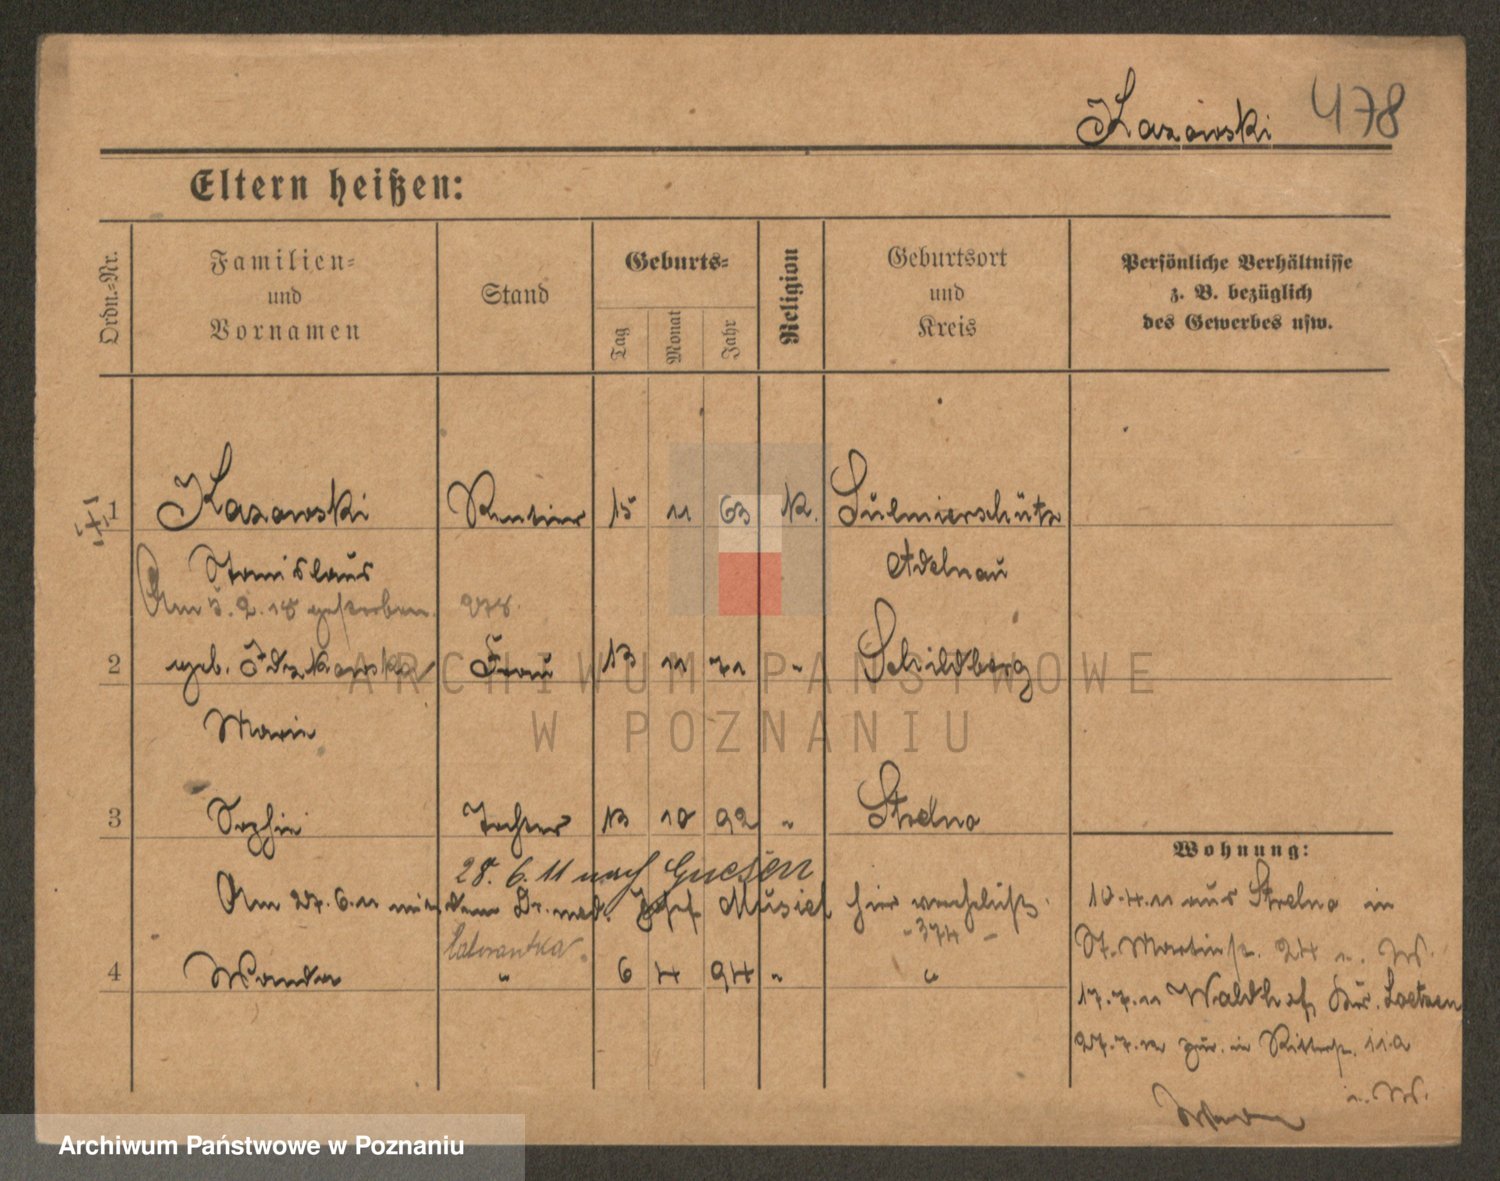 Kazowski 478
Eltern heißen:
Ordn.-Nr.
Familien- und Vornamen
Stand
Geburts-
Tag
Monat
Jahr
Religion
Geburtsort und Kreis
Persönliche Verhältnisse z. B. bezüglich des Gewerbes usw.
1 Kazowski Rentier 15 11 63 K. Sulmierschütz
Stanislaus Adelnau
Am 5.2.18 gestorben 278.
2 geb. Idzikowska Frau 13 11 71 " Schildberg
Marie
3 Sophie Tochter 13 10 92 " Strelno
28. 6. 11 nach Gnesen
Am 27.6.11 mit dem Dr. med. Josef Musiel hier verehelicht.
" 374 –
4 Wanda " 6 4 94 " "
Wohnung:
10.4.11 aus Strelno in
St. Martinstr. 24 u. W.
17.7.11 Waldhof, Kr. Loetzen
27.7.12 zur. in Ritterstr. 11a
u. W.
ARCHIWUM PAŃSTWOWE
W POZNANIU
Archiwum Państwowe w Poznaniu